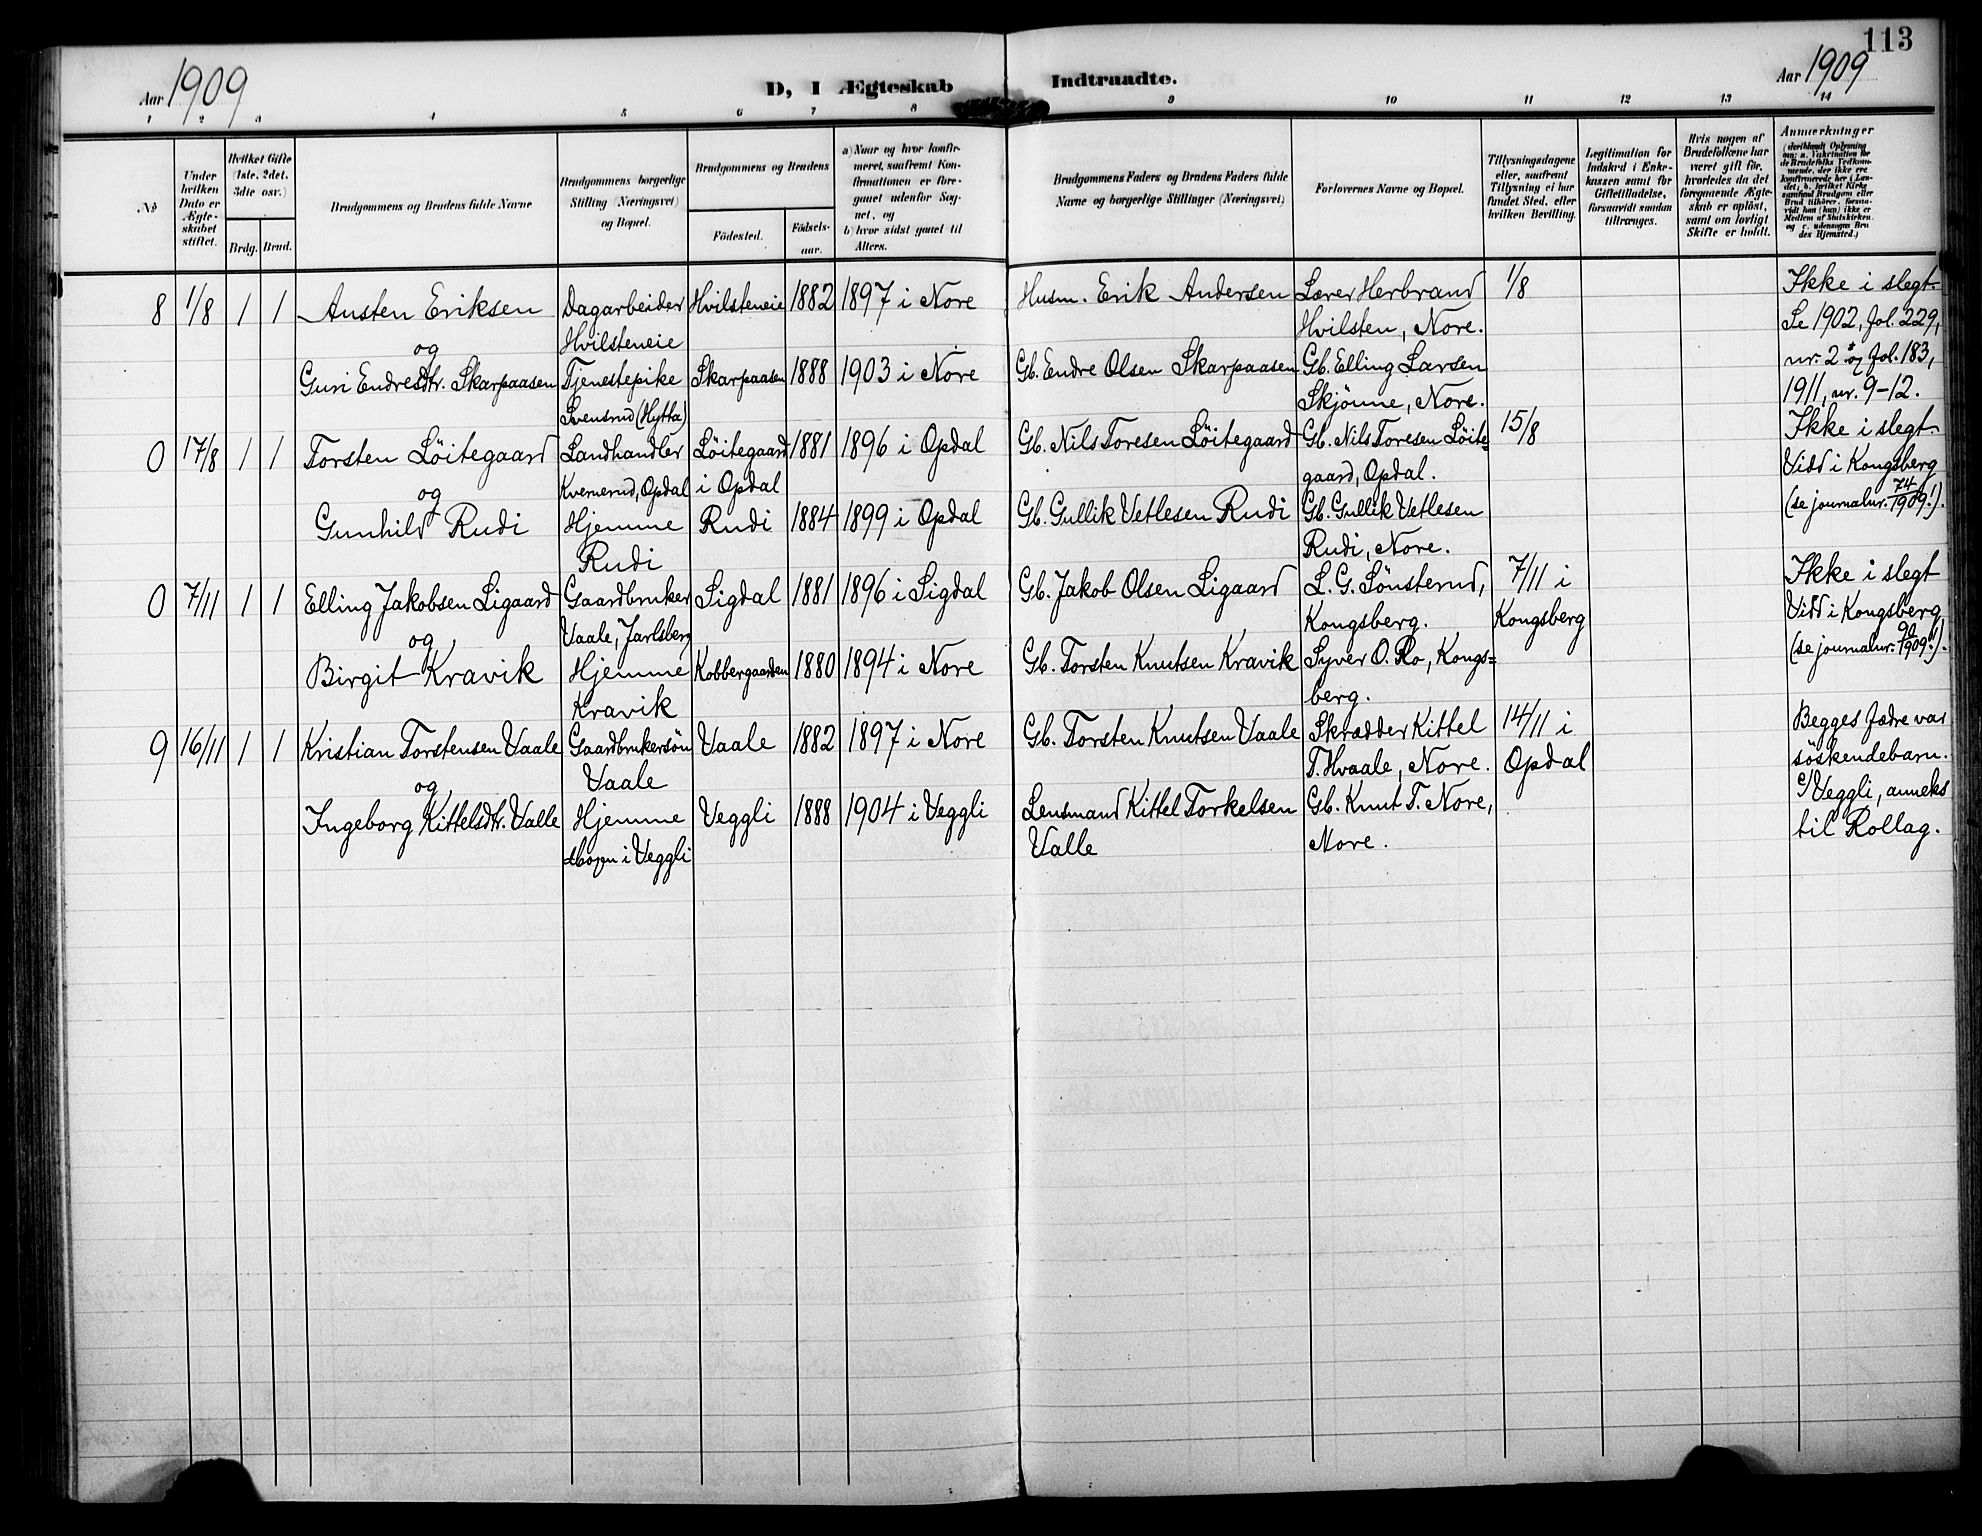 113
Aar 1909
D, I Ægteskab Indtraadte.
Aar 1909
1 2 3 4 5 6 7 8 9 10 11 12 13 14
No
Under hvilken Dato er Ægteskabet stiftet.
Hvilket Gifte (1ste, 2det, 3die osv.)
Brdg. Brud.
Brudgommens og Brudens fulde Navne
Brudgommens borgerlige Stilling (Næringsvei) og Bopæl.
Brudgommens og Brudens
Födested. Födselsaar.
a) Naar og hvor konfirmeret, saafremt Konfirmationen er foregaaet udenfor Sognet, og
b) hvor sidst gaaet til Alters.
Brudgommens Faders og Brudens Faders fulde Navne og borgerlige Stillinger (Næringsvei)
Forlovernes Navne og Bopæl.
Tillysningsdagene eller, saafremt Tillysning ei har fundet Sted, efter hvilken Bevilling.
Legitimation for Indskud i Enkekassen samt for Giftetilladelse, forsaavidt saadan tiltrænges.
Hvis nogen af Brudefolkene har været gift för, hvorledes da det foregaaende Ægteskab er oplöst, samt om lovligt Skifte er holdt.
Anmerkninger
(deriblandt Oplysning om: a. Vakcination for de Brudefolks Vedkommende, der ikke ere konfirmerede her i Landet; b. hvilket Kirkesamfund Brudgom eller Brud tilhörer, forsaavidt han (hun) ikke er Medlem af Statskirken, og c. udensogns Brudes Hjemsted.)
8 1/8 1 1 Austen Eriksen Dagarbeider Hvilsteneie 1882 1897 i Nore Husm. Erik Andersen Lærer Herbrand 1/8 Ikke i slegt.
og Hvilsteneie Hvilsten, Nore. Se 1902, fol. 229,
Guri Endresdtr. Skarpaasen Tjenestepike Skarpaasen 1888 1903 i Nore Gb. Endre Olsen Skarpaasen Gb. Elling Larsen nr. 2 og fol. 183,
Svensrud (Hytta) Skjönne, Nore. 1911, nr. 9-12.
0 17/8 1 1 Torsten Löitegaard Landhandler Löitegaard 1881 1896 i Opdal Gb. Nils Toresen Löitegaard Gb. Nils Toresen Löite= 15/8 Ikke i slegt.
og Kvernerud, Opdal i Opdal gaard, Opdal. Vidd i Kongsberg
Gunhild Rudi Hjemme Rudi 1884 1899 i Opdal Gb. Gullik Vetlesen Rudi Gb. Gullik Vetlesen (se journalnr. 74/1909!).
Rudi Rudi, Nore.
0 7/11 1 1 Elling Jakobsen Ligaard Gaardbruker Sigdal 1881 1896 i Sigdal Gb. Jakob Olsen Ligaard L. G. Sönsterud, 7/11 i Ikke i slegt
og Vaale, Jarlsberg Kongsberg. Kongsberg Vidd i Kongsberg
Birgit Kravik Hjemme Kobbergaarden 1880 1894 i Nore Gb. Torsten Knutsen Kravik Syver O. Ro, Kongs= (se journalnr. 90/1909!).
Kravik berg.
9 16/11 1 1 Kristian Torstensen Vaale Gaardbrukersön Vaale 1882 1897 i Nore Gb. Torsten Knutsen Vaale Skrædder Kittel 14/11 i Begges fædre var
og Vaale T. Hvaale, Nore. Opdal söskendebarn.
Ingeborg Kittelsdtr. Valle Hjemme Veggli 1888 1904 i Veggli Lensmand Kittel Torkelsen Gb. Knut T. Nore, c/ Veggli, anneks
i Veggli Valle Nore. til Rollag.